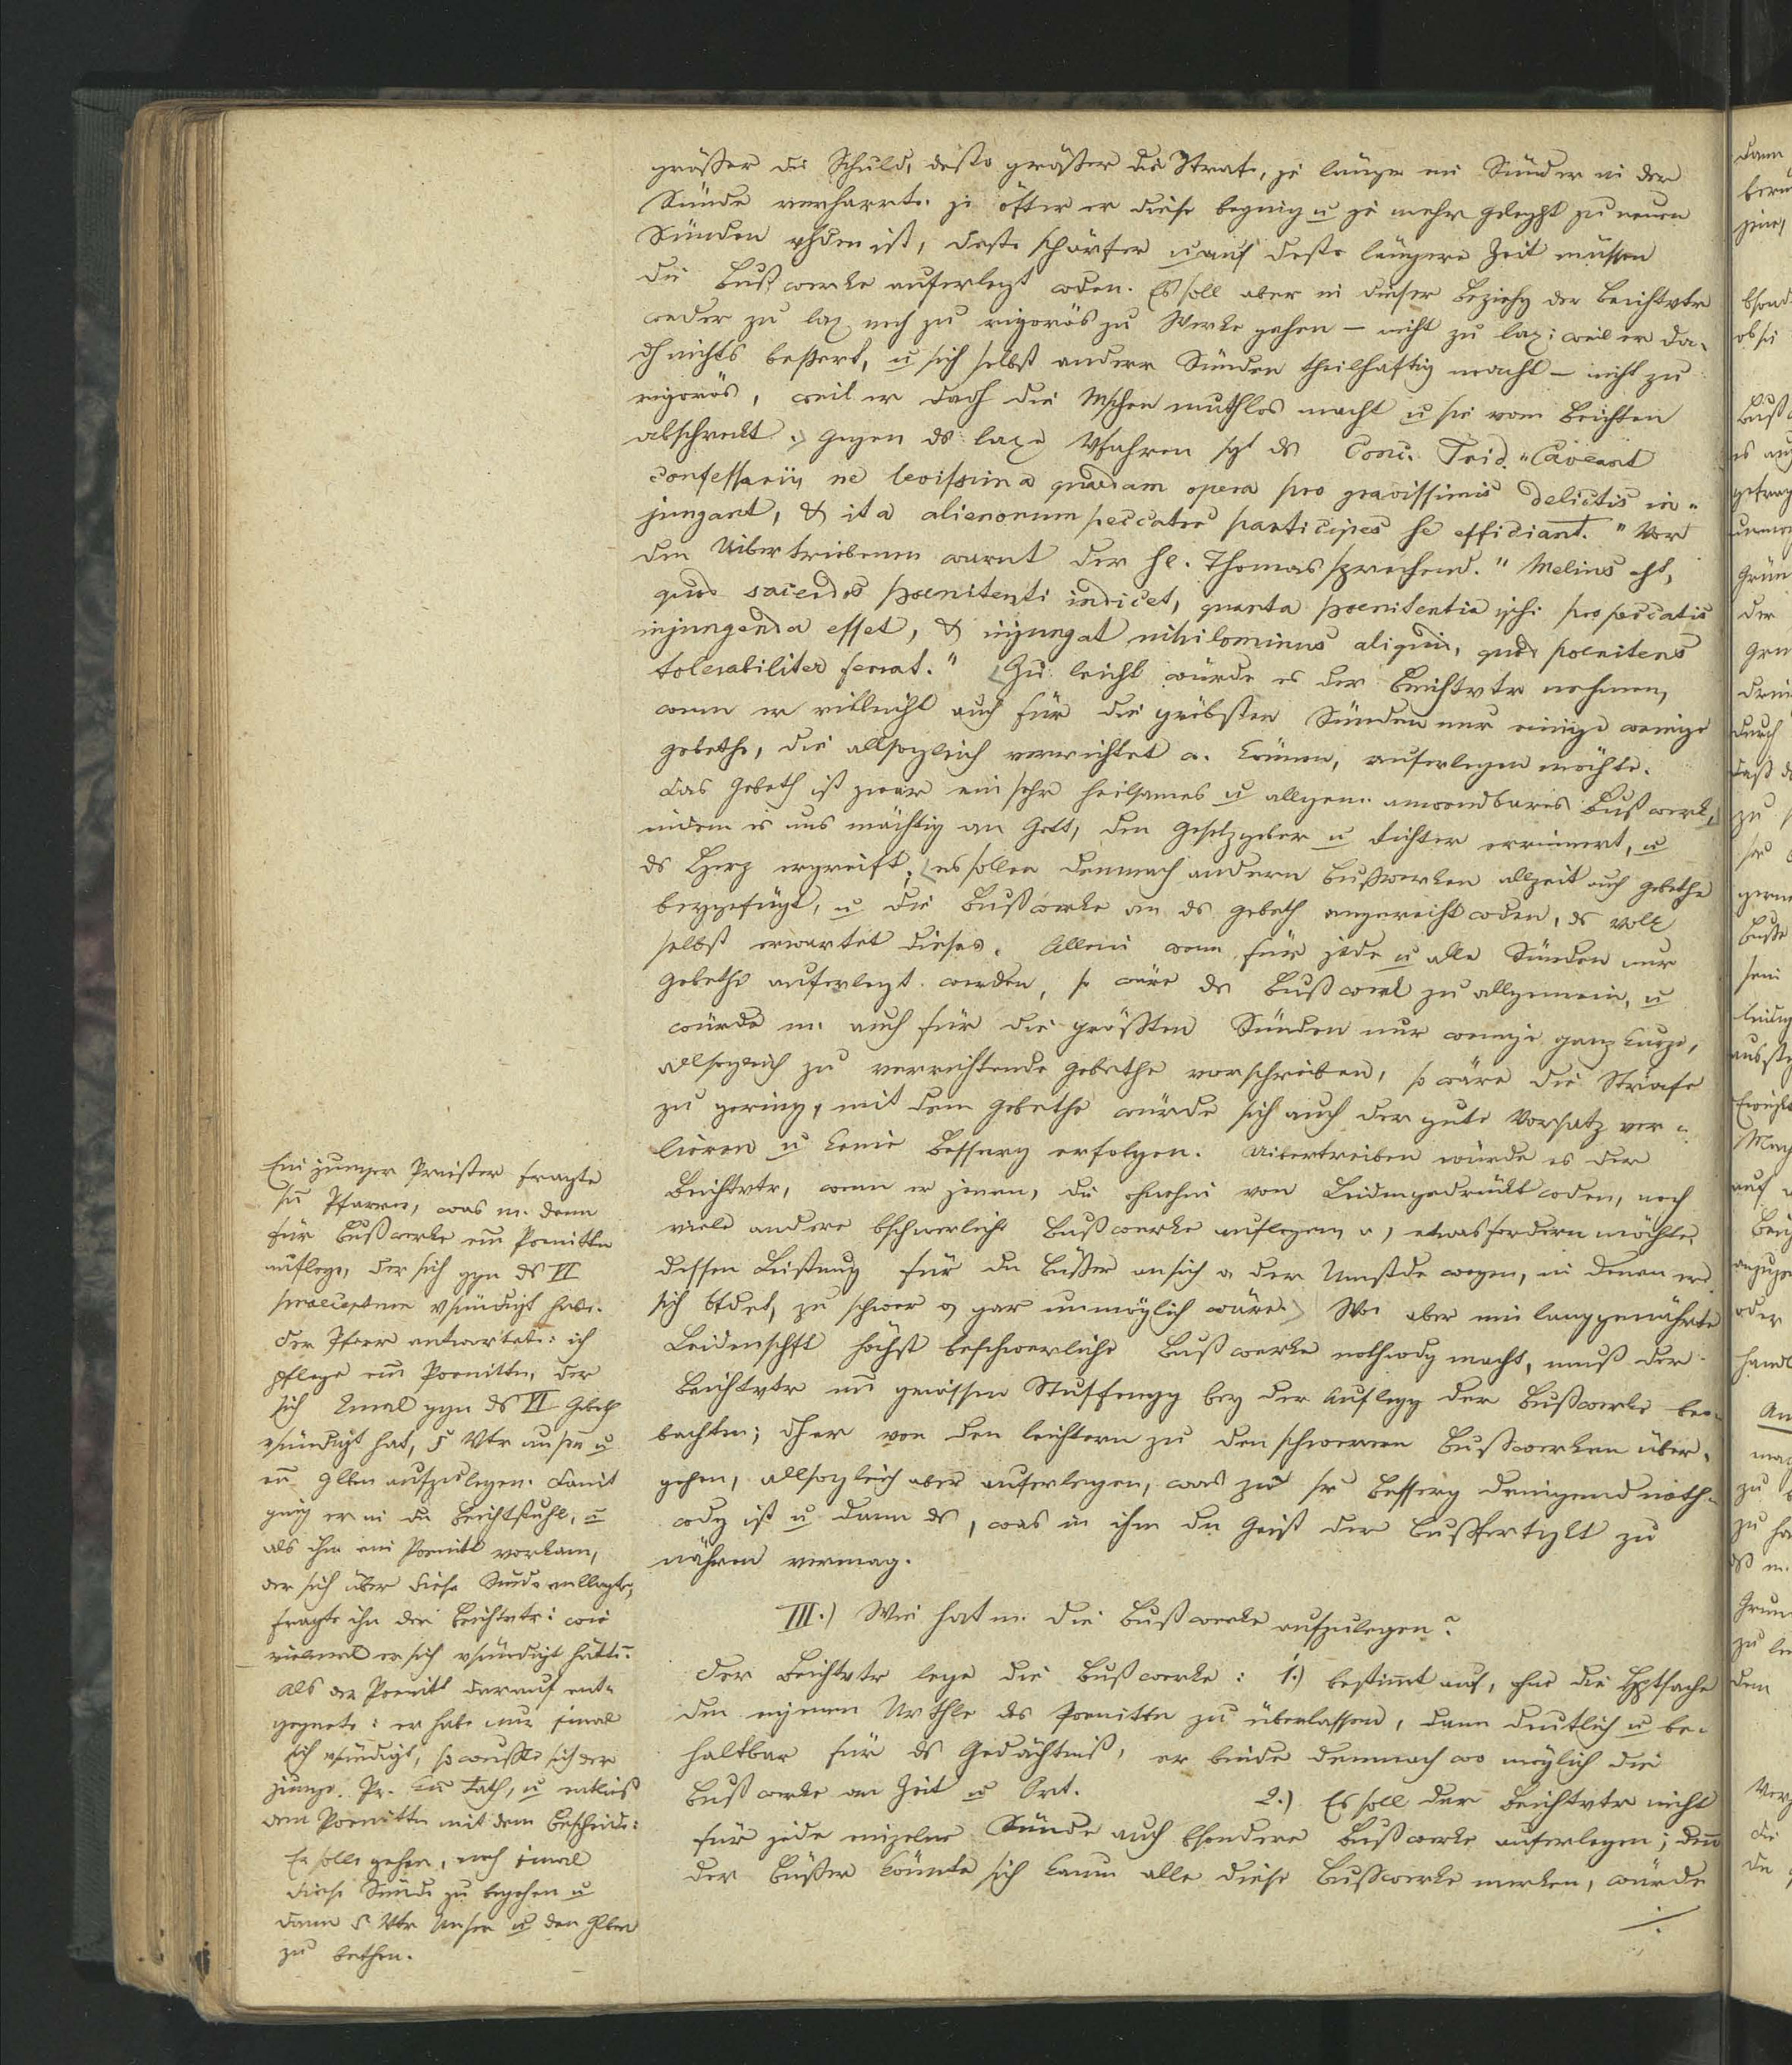 größer die Schuld, desto größer die Strafe, je länger ein Sünder in der
Sünde verharrte. je öfter er diese beging u je mehr gelegt zu neuen
Sünden vhden ist, desto schärfer u auf desto längere Zeit müssen
die Bußwerke auferlegt wden. Es soll aber in dieser Beziehg der Beichtvtr
weder zu lax noch zu rigorös zu Werke gehen – nicht zu lax: weil er da-
dh nichts beßert, u sich selbst anderer Sünden theilhaftig macht – nicht zu
rigorös, weil er dadh die Mschen muthlos macht u sie vom Beichten
abschreckt. Gegen ds laxe Vfahren sgt ds Conc. Trid. "Caveant
confessarii, ne levissima quaedam opera pro gravissimis delictis in-
jungant, & ita alienorum peccator participes se efficiant." Vor
den Uibertriebenen warnt der hl. Thomas sprechend. "Melius est,
quod sacerdos poenitenti indicet, quanta poenitentia ipsi pro peccatis
injungenda esset, & injungat nihilominus aliquid, quod poenitens
tolerabiliter ferrat." Zu leicht würde es der Beichtvtr nehmen,
wenn er vielleicht auch für die gröbsten Sünden nur einige wenige
gebethe, die allsogleich verrichtet w. können, auferlegen möchte.
Das Gebeth ist zwar ein sehr heilsames u allgem. anwendbares Bußwerk,
indem es uns mächtig an Gott, den Gesetzgeber u Richter errinnert, u
ds Herz ergreift, es sollen demnach andern Bußwerken allzeit auch gebethe
beygefügt, u die Bußwerke an ds gebeth angereiht wden, ds Volk
selbst erwartet dieses. Allein wenn für jede u alle Sünden nur
gebethe auferlegt werden, so wäre ds Bußwerk zu allgemein, u
würde m. auch für die größten Sünden nur wenige ganz kurze,
allsogleich zu verrichtende gebethe vorschreiben, so wäre die Strafe
zu gering, mit dem gebethe würde sich auch der gute Vorsatz ver-
lieren u keine Besserg erfolgen. Uibertreiben würde es der
Beichtvtr, wenn er jenen, die ohnehin von Leiden gedrückt wden, noch
viele andere bschwerliche Bußwerke auflegen, o, etwas fordern möchte,
dessen Leistung für den Büßer an sich o der Umstde wegen, in denen er
sich bfdet, zu schwer o gar unmöglich wäre. Wo aber eine langgenährte
Leidenschft höchst beschwerliche Bußwerke nothwdg macht, muß der
Beichtvtr eine gewissen Stuffengg bey der Auflegg der Bußwerke beo-
bachten; dh er von den leichtern zu den schwerern Bußwerken über-
gehen, allsogleich aber auferlegen, was zur sr Besserg dringend noth-
wdg ist u dann ds, was in ihm den Geist der Bußfertigkt zu
nähren vermag.
III.) Wie hat m. die Bußwerke aufzulegen?
Der Beichtvtr lege die Bußwerke: 1.) bestimmt auf, ohne die Hptsache
den eigenen Urthle des Poenitten zu überlassen, dann deutlich u be-
haltbar für ds Gedächtniß, er binde demnach wo möglich die
Bußwerke an Zeit u Ort. 2.) Es soll der Beichtvtr nicht
für jede einzelne Sünde auch bsondere Bußwerke auferlegen; denn
der Büßer könnte sich kaum alle diese Bußwerke merken, würde
./.
Ein junger Priester fragte
sn Pfarrer, was m. denn
für Bußwerke ein Poenitten
auflege, der sich ggn ds VI
praeceptum vsündigt habe.
Der Pfrrer antwortete: ich
pflege ein Poenitten, der
sich 1mal ggn ds VI Geboth
vsündigt hat, 5 Vtr unser u
ein Glben aufzulegen. Damit
ging er in den Beichtstuhl, u
als ihm ein Poenitt vorkam,
der sich über diese Sünde anklagte,
fragte ihn der Beichtvtr: wie
vielmal er sich vsündigt hätte.
Als der Poenitt darauf ent-
gegnete: er habe nur 1mal
sich vsündigt, so wußte sich der
junge Pr. kein Rath, u entließ
den Poenitten mit dem Bescheide:
Er solle gehen, noch 1mal
diese Sünde zu begehen u
dann 5 Vtr Unser u den Glben
zu bethen.